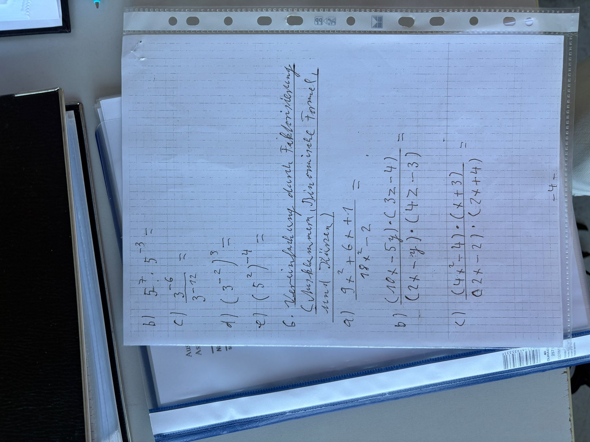 b) 5⁷ : 5⁻³ =
c) 3⁻⁶ / 3⁻¹² =
d) (3⁻²)³ =
e) (5²)⁻⁴ =
6. Vereinfachung durch Faktorisierung
(Ausklammern, Binomische Formel,
und Kürzen)
a) (9x² + 6x + 1) / (18x² - 2) =
b) (10x - 5y) · (3z - 4) / (2x - y) · (4z - 3) =
c) (4x² - 4) · (x + 3) / (2x - 2) · (2x + 4) =
- 4 -